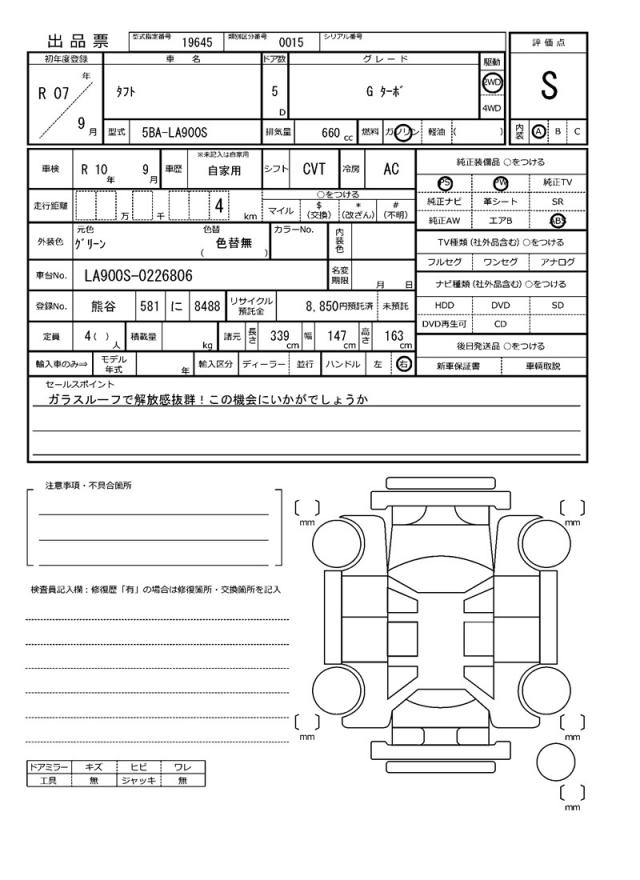 出品票 型式指定番号 19645 類別区分番号 0015 シリアル番号
評価点
S
内装 A B C
初年度登録 車名 ドア数 グレード 駆動
R 07 年 9 月 ﾀﾌﾄ 5 D G ﾀｰﾎﾞ 2WD 4WD
型式 5BA-LA900S 排気量 660 cc 燃料 ガソリン 軽油 ( )
車検 R 10 年 9 月 車歴 ※未記入は自家用 自家用 シフト CVT 冷房 AC
走行距離 万 千 4 km ○をつける
マイル $(交換) *(改ざん) #(不明)
外装色 元色 ｸﾞﾘｰﾝ 色替 色替無 ( ) カラーNo. 内装色
車台No. LA900S-0226806 名変期限 月 日
登録No. 熊谷 581 に 8488 リサイクル預託金 8,850円預託済 未預託
定員 4 ( ) 人 積載量 kg 諸元 長さ 339 cm 幅 147 cm 高さ 163 cm
輸入車のみ⇒ モデル年式 年 輸入区分 ディーラー 並行 ハンドル 左 右
純正装備品 ○をつける
PS PW 純正TV
純正ナビ 革シート SR
純正AW エアB ABS
TV種類 (社外品含む) ○をつける
フルセグ ワンセグ アナログ
ナビ種類 (社外品含む) ○をつける
HDD DVD SD
DVD再生可 CD
後日発送品 ○をつける
新車保証書 車輌取説
セールスポイント
ガラスルーフで解放感抜群！この機会にいかがでしょうか
注意事項・不具合箇所
検査員記入欄：修復歴「有」の場合は修復箇所・交換箇所を記入
ドアミラー キズ ヒビ ワレ
工具 無 ジャッキ 無
〔 〕 mm
〔 〕 mm
〔 〕 mm
〔 〕 mm
〔 〕 mm